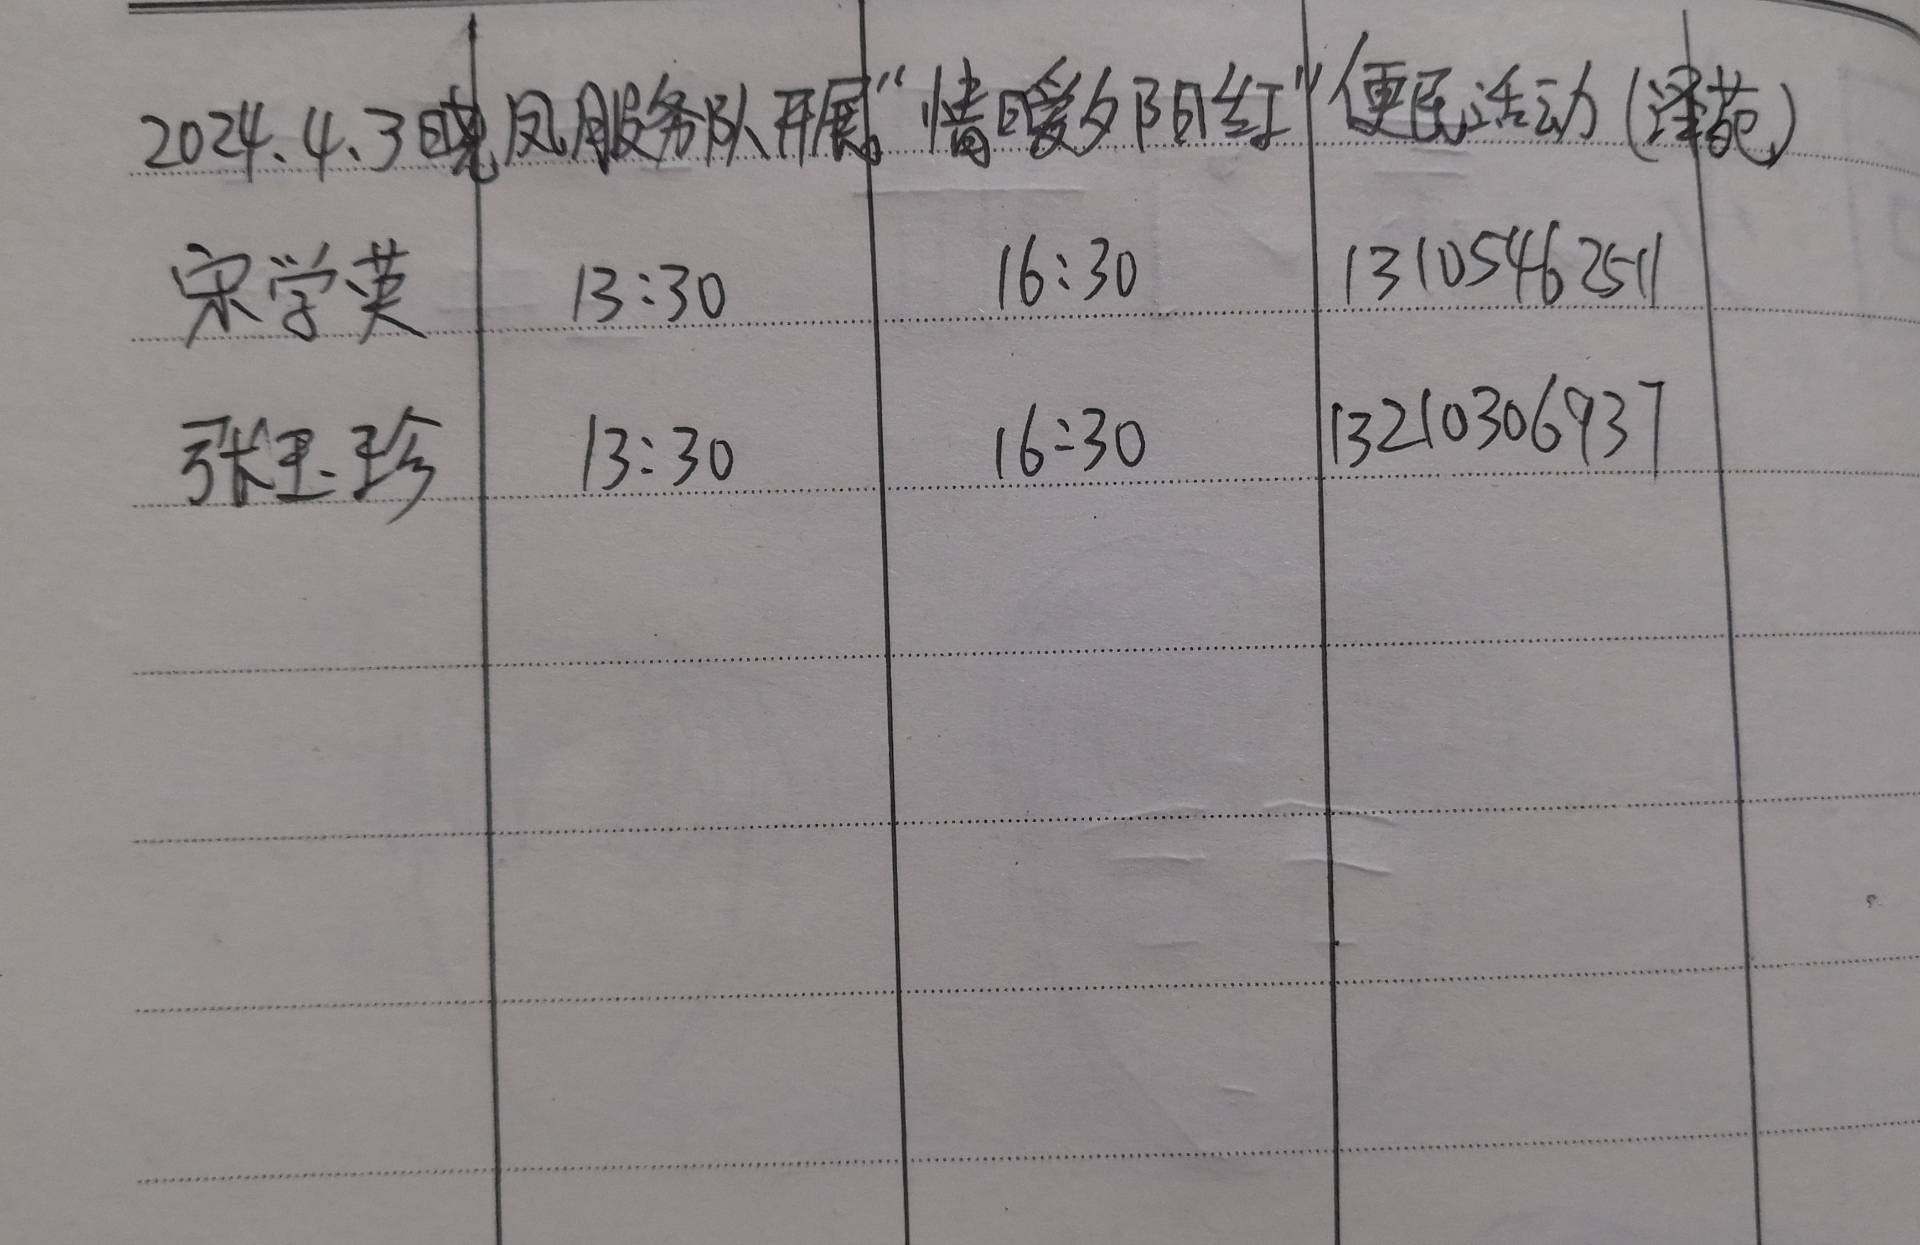 2024.4.3晓凤服务队开展"情暖夕阳红"便民活动(泽苑)
宋学英 13:30 16:30 13105462511
张玉珍 13:30 16:30 13210306937